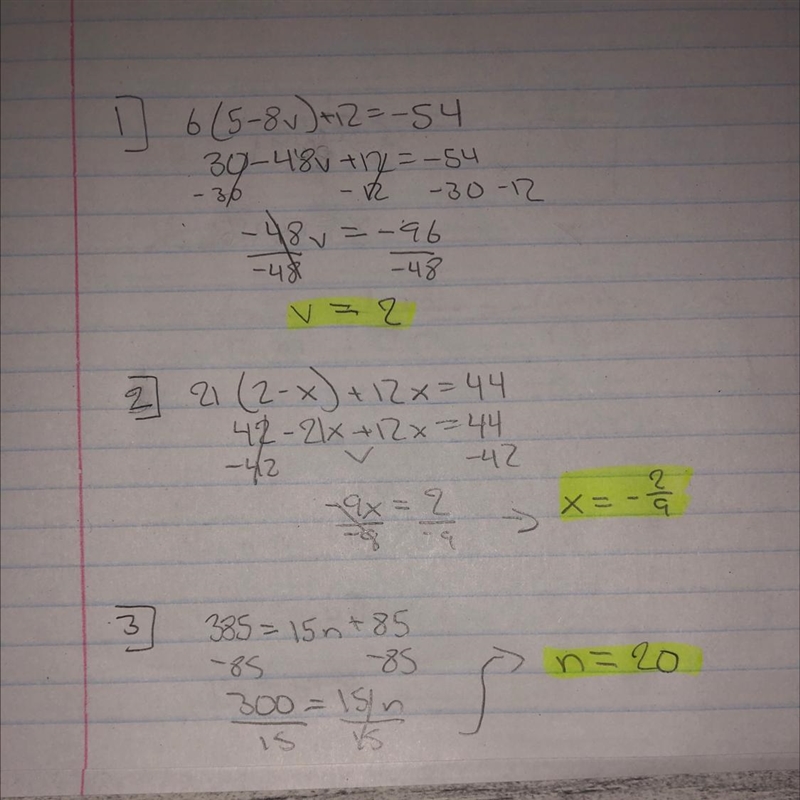 1] 6(5-8v)+12=-54
30-48v+12=-54
-30 -12 -30-12
-48v = -96
-48 -48
v = 2
2] 21(2-x)+12x=44
42-21x+12x=44
-42 -42
-9x = 2
-9 -9
→ x = -2/9
3] 385=15n+85
-85 -85
300 = 15n
15 15
→ n=20